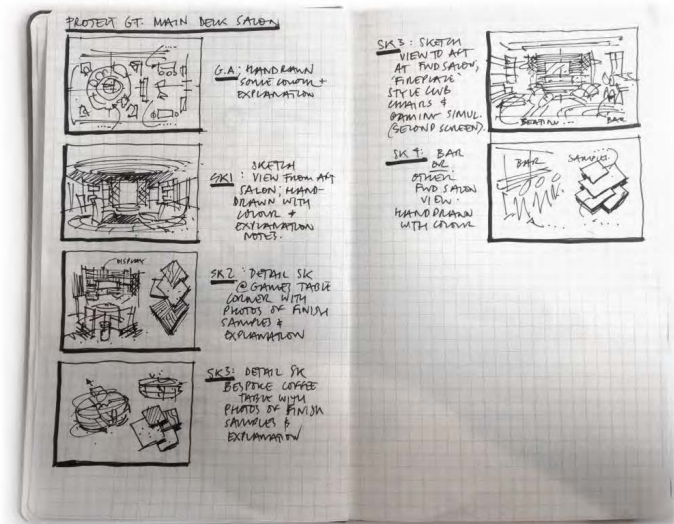 PROJECT GT. MAIN DECK SALON
G.A: HANDRAWN
SOME COLOUR +
EXPLANATION
SKETCH
SK1: VIEW FROM AFT
SALON; HAND-
DRAWN WITH
COLOUR +
EXPLANATION
NOTES.
DISPLAY
SK2: DETAIL SK
@ GAMES TABLE
CORNER WITH
PHOTOS OF FINISH
SAMPLES &
EXPLANATION
SK3: DETAIL SK
BESPOKE COFFEE
TABLE WITH
PHOTOS OF FINISH
SAMPLES &
EXPLANATION
SK3: SKETCH
VIEW TO AFT
AT FWD SALON,
'FIREPLACE'
STYLE CLUB
CHAIRS &
GAMING SIMUL.
(SECOND SCREEN).
SEATING... BAR
SK4: BAR
OR
OTHER
FWD SALON
VIEW.
HANDDRAWN
WITH COLOUR
BAR
SAMPLES